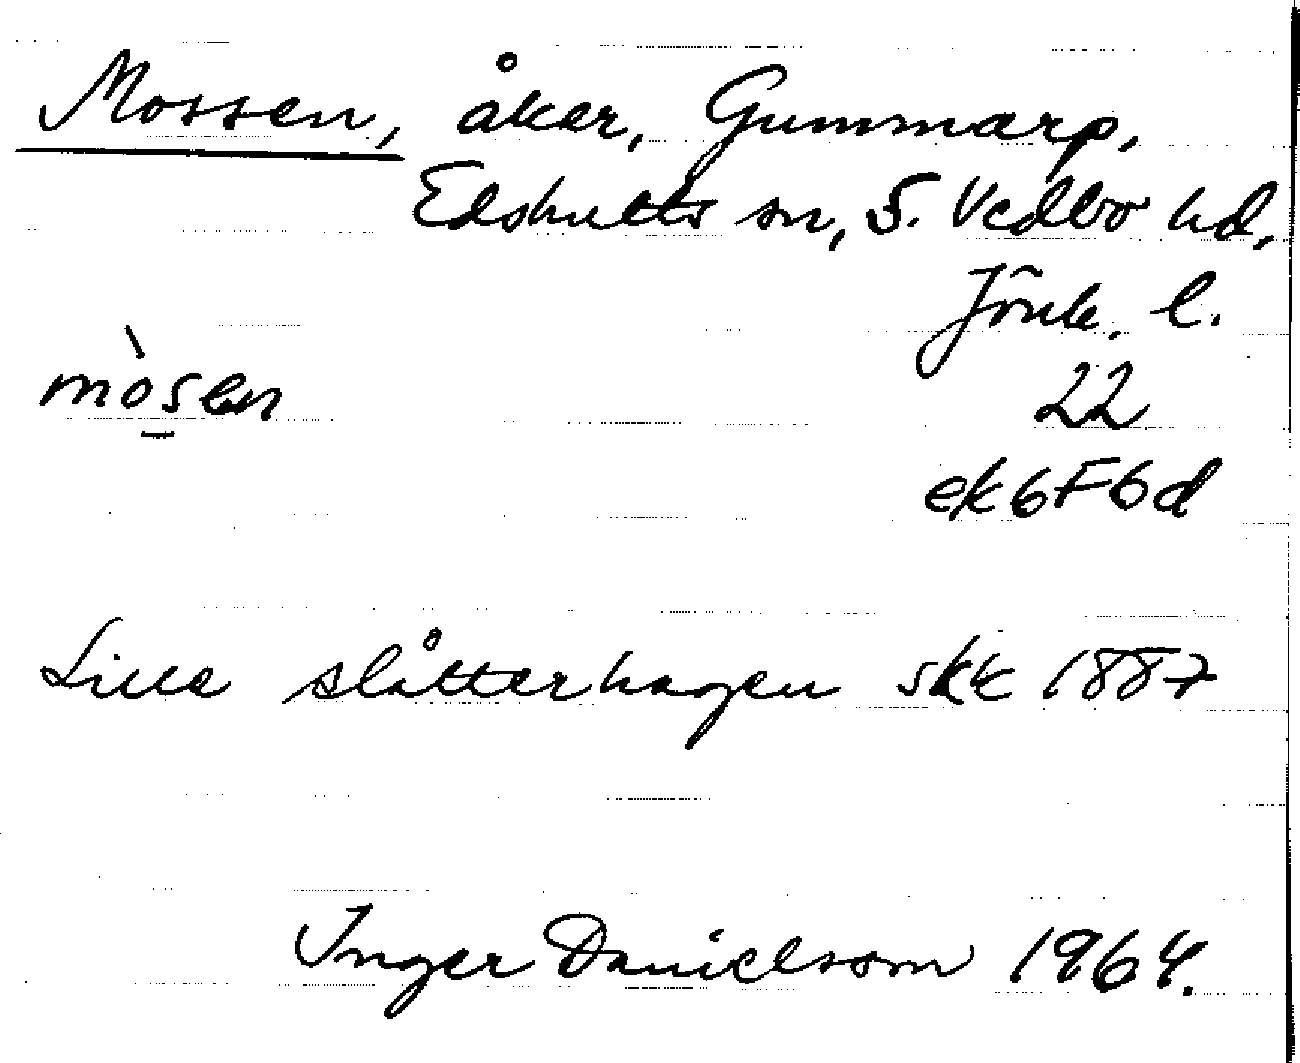 Mossen, åker, Gummarp,
Edshults sn, S. Vedbo hd,
Jönk. l.
mòsen
22
ek6F6d
Lilla slåtterhagen skk 1887
Inger Danielsson 1964.